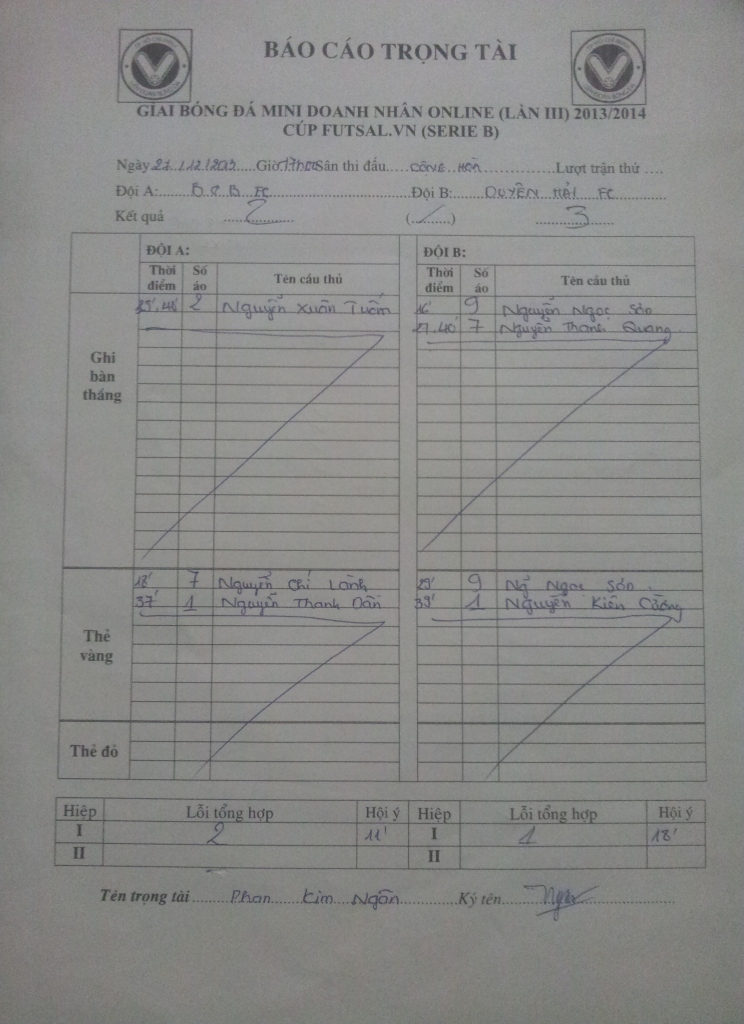 BÁO CÁO TRỌNG TÀI
GIẢI BÓNG ĐÁ MINI DOANH NHÂN ONLINE (LẦN III) 2013/2014
CÚP FUTSAL.VN (SERIE B)
Ngày 27/12/2013 Giờ Sân thi đấu CỘNG HÒA Lượt trận thứ ....
Đội A: B.C.B FC Đội B: DUYÊN HẢI FC
Kết quả 2 (/) 3
ĐỘI A: ĐỘI B:
Thời điểm Số áo Tên cầu thủ Thời điểm Số áo Tên cầu thủ
Ghi bàn thắng
2 Nguyễn Xuân Tuấn 16' 9 Nguyễn Ngọc Sơn
27.40' 7 Nguyễn Thanh Quang
Thẻ vàng
18' 7 Nguyễn Chí Lành 29' 9 Ng Ngọc Sơn
37' 1 Nguyễn Thanh Dân 39' 1 Nguyễn Kiên Cường
Thẻ đỏ
Hiệp Lỗi tổng hợp Hội ý Hiệp Lỗi tổng hợp Hội ý
I 2 11' I 1 18'
II II
Tên trọng tài Phan Kim Ngân Ký tên